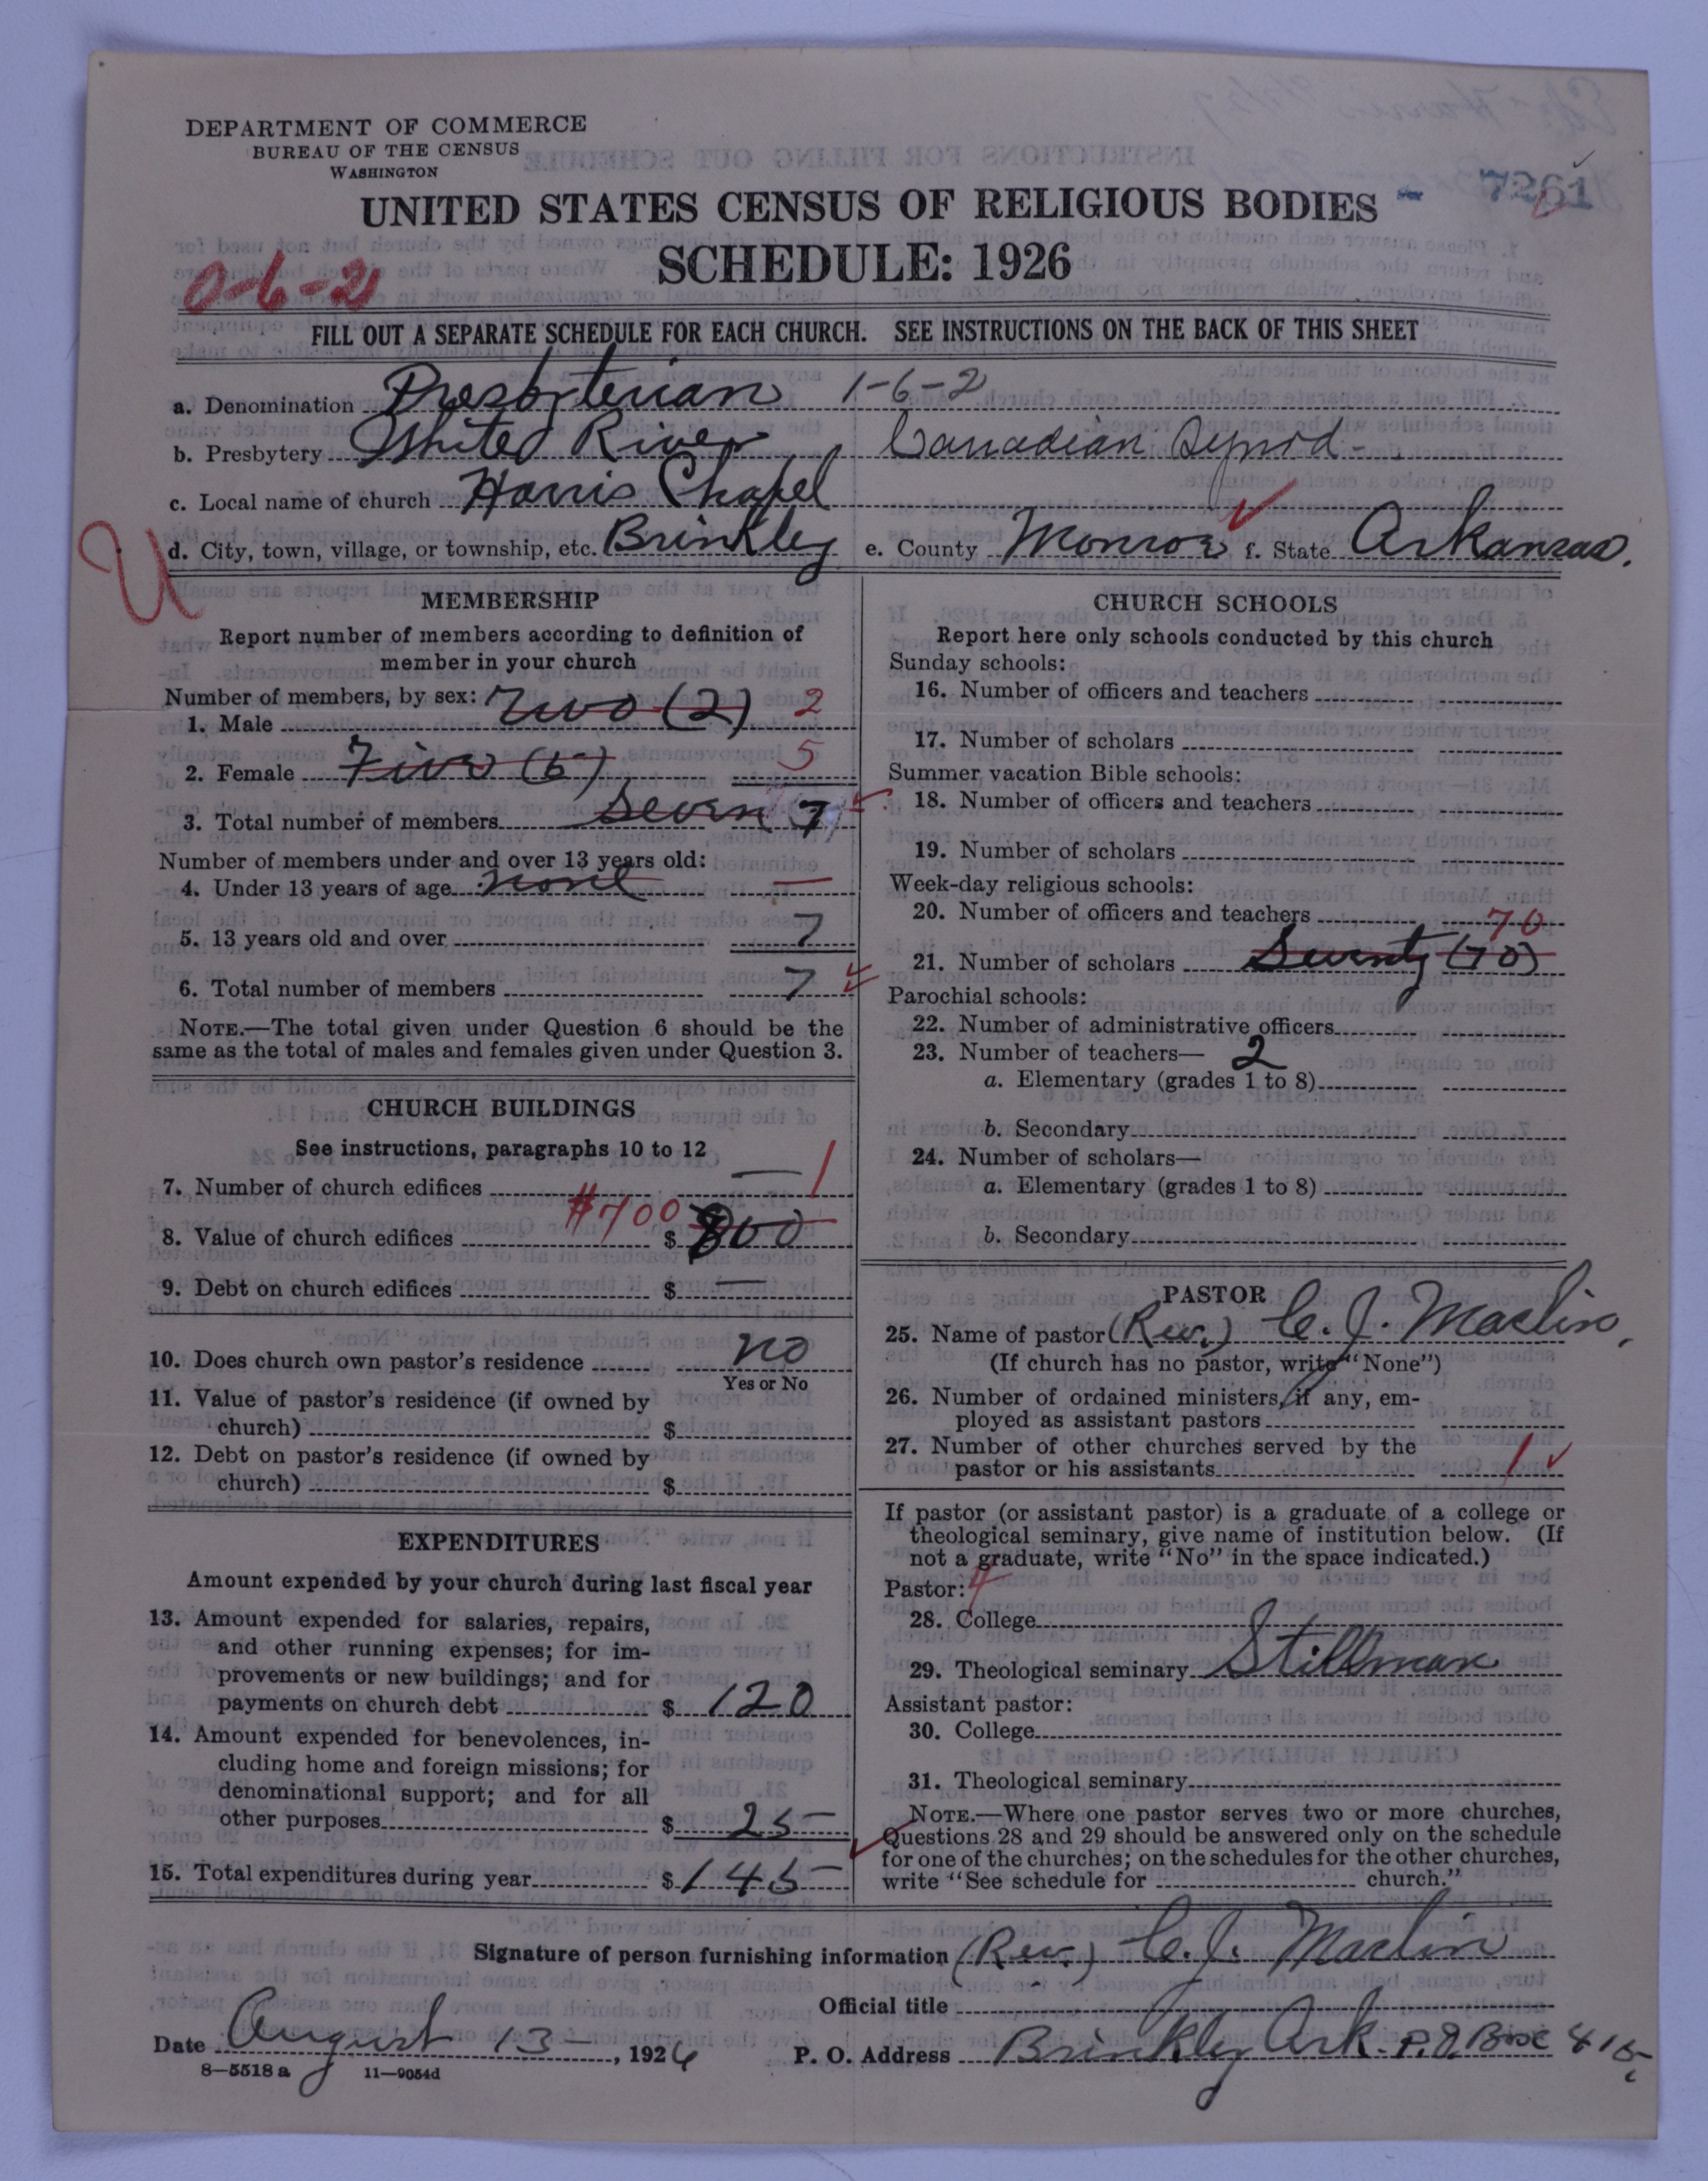 DEPARTMENT OF COMMERCE
BUREAU OF THE CENSUS
WASHINGTON
7261
UNITED STATES CENSUS OF RELIGIOUS BODIES -
SCHEDULE: 1926
0-6-2
FILL OUT A SEPARATE SCHEDULE FOR EACH CHURCH. SEE INSTRUCTIONS ON THE BACK OF THIS SHEET
a. Denomination Presbyterian 1-6-2
b. Presbytery White River Canadian Synod-
c. Local name of church Harris Chapel
d. City, town, village, or township, etc. Brinkley e. County Monroe f. State Arkansas.
U
MEMBERSHIP
Report number of members according to definition of
member in your church
Number of members, by sex:
1. Male Two (2) 2
2. Female Five (5) 5
3. Total number of members Seven 7
Number of members under and over 13 years old:
4. Under 13 years of age none —
5. 13 years old and over 7
6. Total number of members 7
NOTE.—The total given under Question 6 should be the
same as the total of males and females given under Question 3.
CHURCH BUILDINGS
See instructions, paragraphs 10 to 12
7. Number of church edifices — 1
8. Value of church edifices #700 $ 800
9. Debt on church edifices $ —
10. Does church own pastor's residence no
Yes or No
11. Value of pastor's residence (if owned by
church) $
12. Debt on pastor's residence (if owned by
church) $
EXPENDITURES
Amount expended by your church during last fiscal year
13. Amount expended for salaries, repairs,
and other running expenses; for im-
provements or new buildings; and for
payments on church debt $ 120
14. Amount expended for benevolences, in-
cluding home and foreign missions; for
denominational support; and for all
other purposes $ 25-
15. Total expenditures during year $ 145-
CHURCH SCHOOLS
Report here only schools conducted by this church
Sunday schools:
16. Number of officers and teachers
17. Number of scholars
Summer vacation Bible schools:
18. Number of officers and teachers
19. Number of scholars
Week-day religious schools:
20. Number of officers and teachers 70
21. Number of scholars Seventy (70)
Parochial schools:
22. Number of administrative officers
23. Number of teachers— 2
a. Elementary (grades 1 to 8)
b. Secondary
24. Number of scholars—
a. Elementary (grades 1 to 8)
b. Secondary
PASTOR
25. Name of pastor (Rev.) C. J. Maclin,
(If church has no pastor, write "None")
26. Number of ordained ministers, if any, em-
ployed as assistant pastors
27. Number of other churches served by the
pastor or his assistants 1
If pastor (or assistant pastor) is a graduate of a college or
theological seminary, give name of institution below. (If
not a graduate, write "No" in the space indicated.)
Pastor: 4
28. College
29. Theological seminary Stillman
Assistant pastor:
30. College
31. Theological seminary
NOTE.—Where one pastor serves two or more churches,
Questions 28 and 29 should be answered only on the schedule
for one of the churches; on the schedules for the other churches,
write "See schedule for church."
Signature of person furnishing information (Rev.) C. J. Maclin
Official title
Date August 13-, 1926 P. O. Address Brinkley Ark. P.O. Box 415
8-5518 a 11-9054d